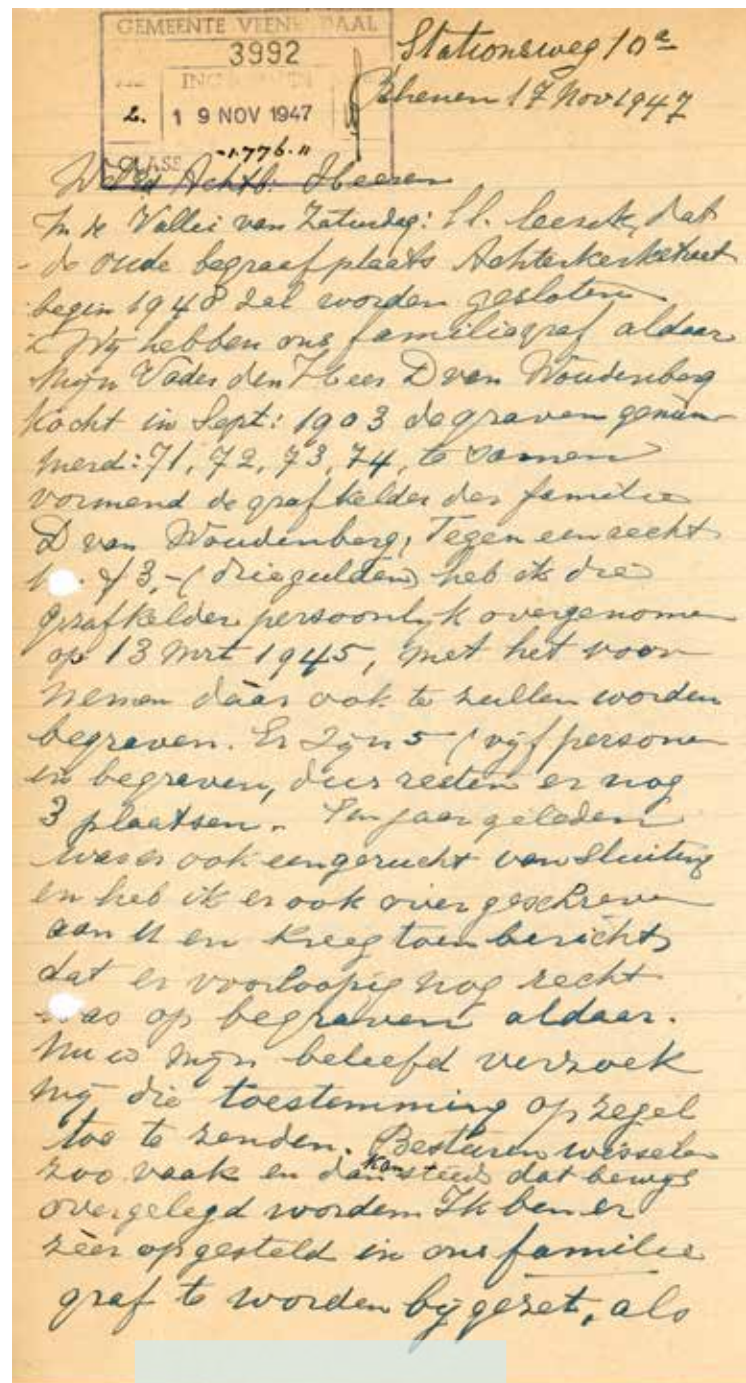 GEMEENTE VEENENDAAL
3992
2.
19 NOV 1947
CLASS -1.776.11
Stationsweg 10a
Rhenen 17 Nov 1947
Achtb: Heeren
In de Vallei van Zaturdag: l.l. lees ik, dat
de oude begraafplaats Achterkerkstraat
begin 1948 zal worden gesloten
Wij hebben ons familiegraf aldaar
Mijn Vader den Heer D van Woudenberg
kocht in Sept: 1903 de graven genum
merd: 71, 72, 73, 74, te samen
vormend de grafkelder der familie
D van Woudenberg, Tegen een recht
f 3,- (drie gulden) heb ik die
grafkelder persoonlyk overgenomen
op 13 Mrt 1945, met het voor
nemen dáár ook te zullen worden
begraven. Er zijn 5 (vyf personen
in begraven, dus resten er nog
3 plaatsen. Een jaar geleden
was er ook een gerucht van sluiting
en heb ik er ook over geschreven
aan U en kreeg toen bericht,
dat er voorloopig nog recht
was op begraven aldaar.
Nu is mijn beleefd verzoek
my die toestemming op zegel
toe te zenden. Besturen wisselen
zoo vaak en dan kan steeds dat bewys
overgelegd worden. Ik ben er
zéér op gesteld in ons familie
graf te worden bygezet, als